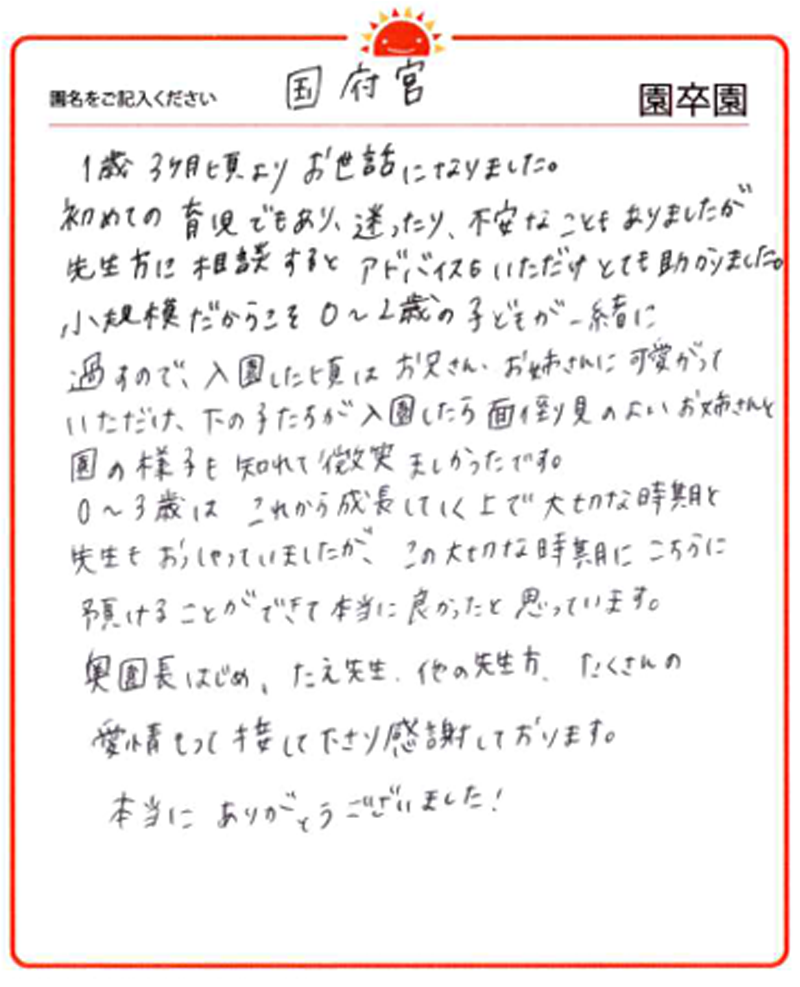 園名をご記入ください 国府宮 園卒園
1歳3ヶ月頃よりお世話になりました。
初めての育児でもあり、迷ったり、不安なこともありましたが
先生方に相談すると アドバイスもいただけとても助かりました。
小規模だからこそ 0〜2歳の子どもが一緒に
過すので、入園した頃は お兄さん、お姉さんに可愛がって
いただけ、下の子たちが入園したら面倒見のよいお姉さんと
園の様子も知れて微笑ましかったです。
0〜3歳は これから成長していく上で大切な時期と
先生もおっしゃっていましたが、この大切な時期にこちらに
預けることができて本当に良かったと思っています。
奥園長はじめ、たえ先生、他の先生方、たくさんの
愛情もって接して下さり感謝しております。
本当に ありがとうございました!